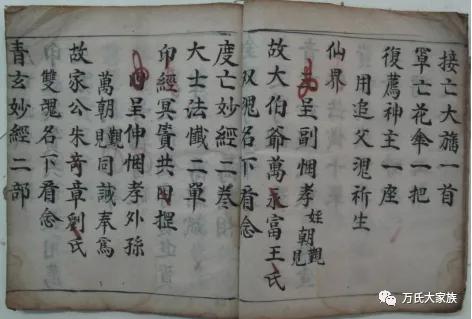 接亡大旛一首
罩亡花傘一把
復薦神主一座
用追父魂祈生
仙界
呈副悃孝姪朝觀見
故大伯爺萬永富王氏
双魂名下看念
度亡妙經二卷
大士法懺二單
印經冥資共四
呈仲悃孝外孫
萬朝觀見同誠奉爲
故家公朱奇章劉氏
雙魂名下看念
青玄妙經二部
万氏大家族